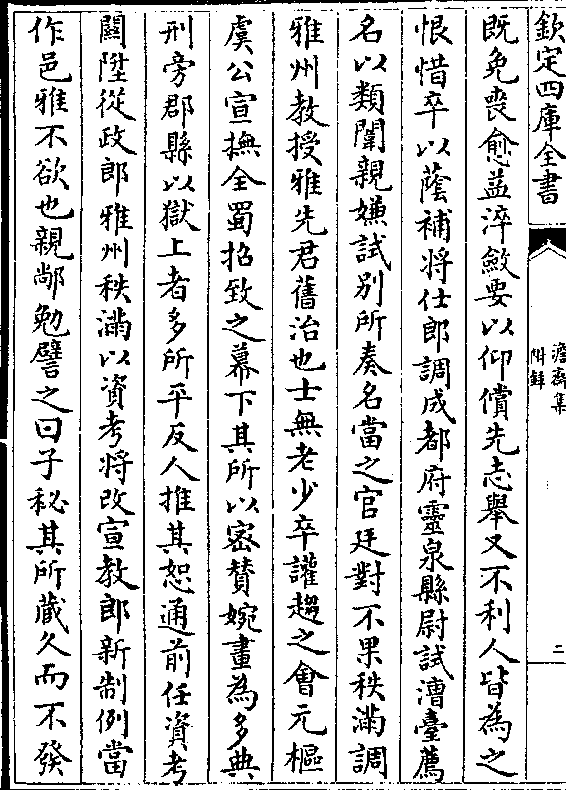 欽定四庫全書
澹齋集
附錄
二
既免喪愈益淬斂要以仰償先志舉又不利人皆為之
恨惜卒以蔭補將仕郎調成都府靈泉縣尉試漕臺薦
名以類闈親嫌試別所奏名當之官廷對不果秩滿調
雅州教授雅先君舊治也士無老少卒讙趨之會元樞
虞公宣撫全蜀招致之幕下其所以密賛婉畫為多典
刑旁郡縣以獄上者多所平反人推其恕通前任資考
關陞從政郎雅州秩滿以資考將改宣教郎新制例當
作邑雅不欲也親鄰勉譬之曰子秘其所蔵久而不發